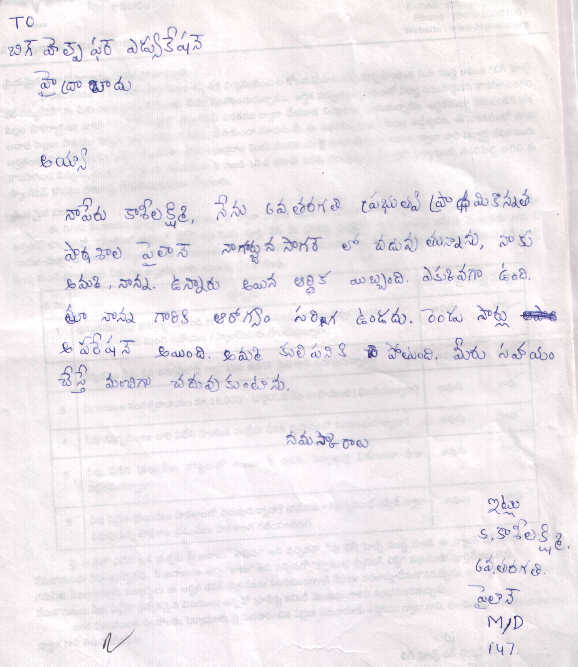 TO
బిగ్ హెల్ప్ ఫర్ ఎడ్యుకేషన్
హైద్రాబాదు
అయ్యా
నాపేరు కాశీలక్ష్మి, నేను 6వ,తరగతి ప్రభుతవ ప్రాథమికొన్నత
పాఠశాల పైలాన్ నాగార్జున సాగర్ లో చదువు తున్నాను, నాకు
అమ్మ, నాన్న. ఉన్నారు అయిన ఆర్థిక యిబ్బంది. ఎకువగా ఉంది.
మా నాన్న గారికి ఆరోగ్యం సరిగ్గ ఉండదు. రెండు సార్లు
ఆపరేషన్ అయింది. అమ్మ కూలిపనికి పోతుంది. మీరు సహాయం
చేస్తే మంచిగా చదువుకుంటాను.
నమస్కారాలు
ఇట్లు
క.కాశీలక్ష్మి.
6వ,తరగతి.
పైలాన్
M/D
147